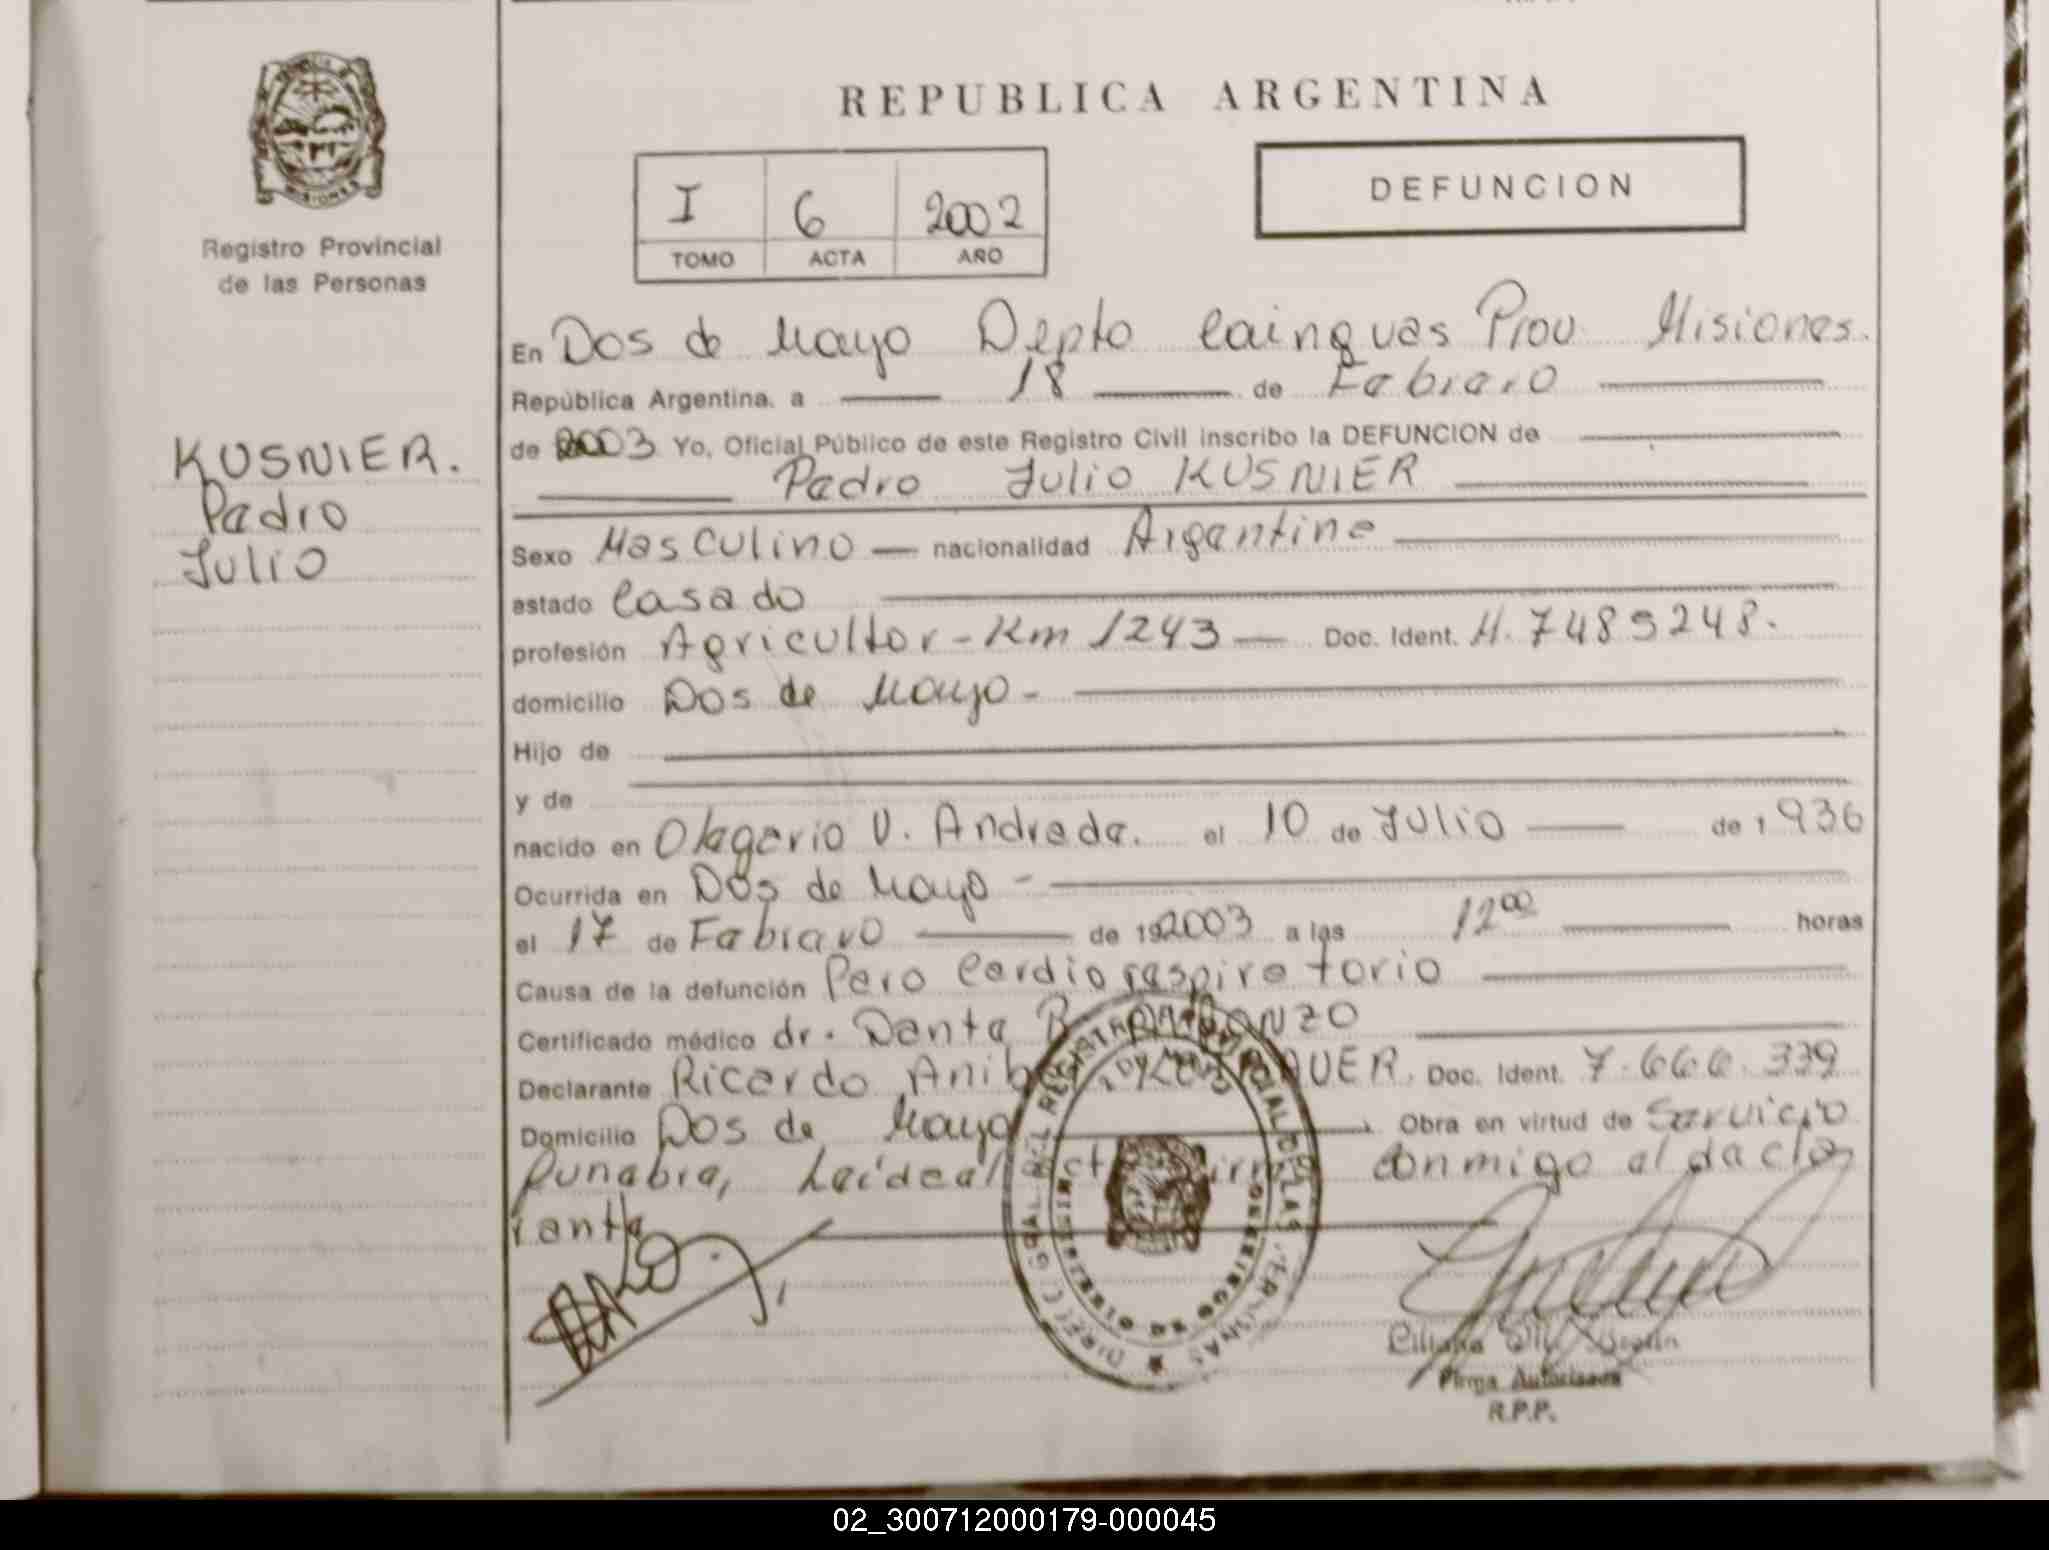 REPUBLICA ARGENTINA
DEFUNCION
I 6 2002
TOMO ACTA AÑO
Registro Provincial
de las Personas
KUSNIER.
Pedro
Julio
En Dos de Mayo Depto Cainguas Prov. Misiones.
República Argentina, a 18 de Febrero
de 2003 Yo, Oficial Público de este Registro Civil inscribo la DEFUNCION de
Pedro Julio KUSNIER
Sexo Masculino nacionalidad Argentina
estado Casado
profesión Agricultor - Km 1243 Doc. Ident. M. 7485248.
domicilio Dos de Mayo -
Hijo de
y de
nacido en Olegario V. Andrade. el 10 de Julio de 1936
Ocurrida en Dos de Mayo -
el 17 de Febrero de 192003 a las 12 00 horas
Causa de la defunción Paro Cardiorespiratorio
Certificado médico dr. Dante B.
Declarante Ricardo Doc. Ident. 7.666.339
Domicilio Dos de Mayo Obra en virtud de Servicio
Funebre, Leídeal conmigo el decla
rante
Firma Autorizada
R.P.P.
02_300712000179-000045